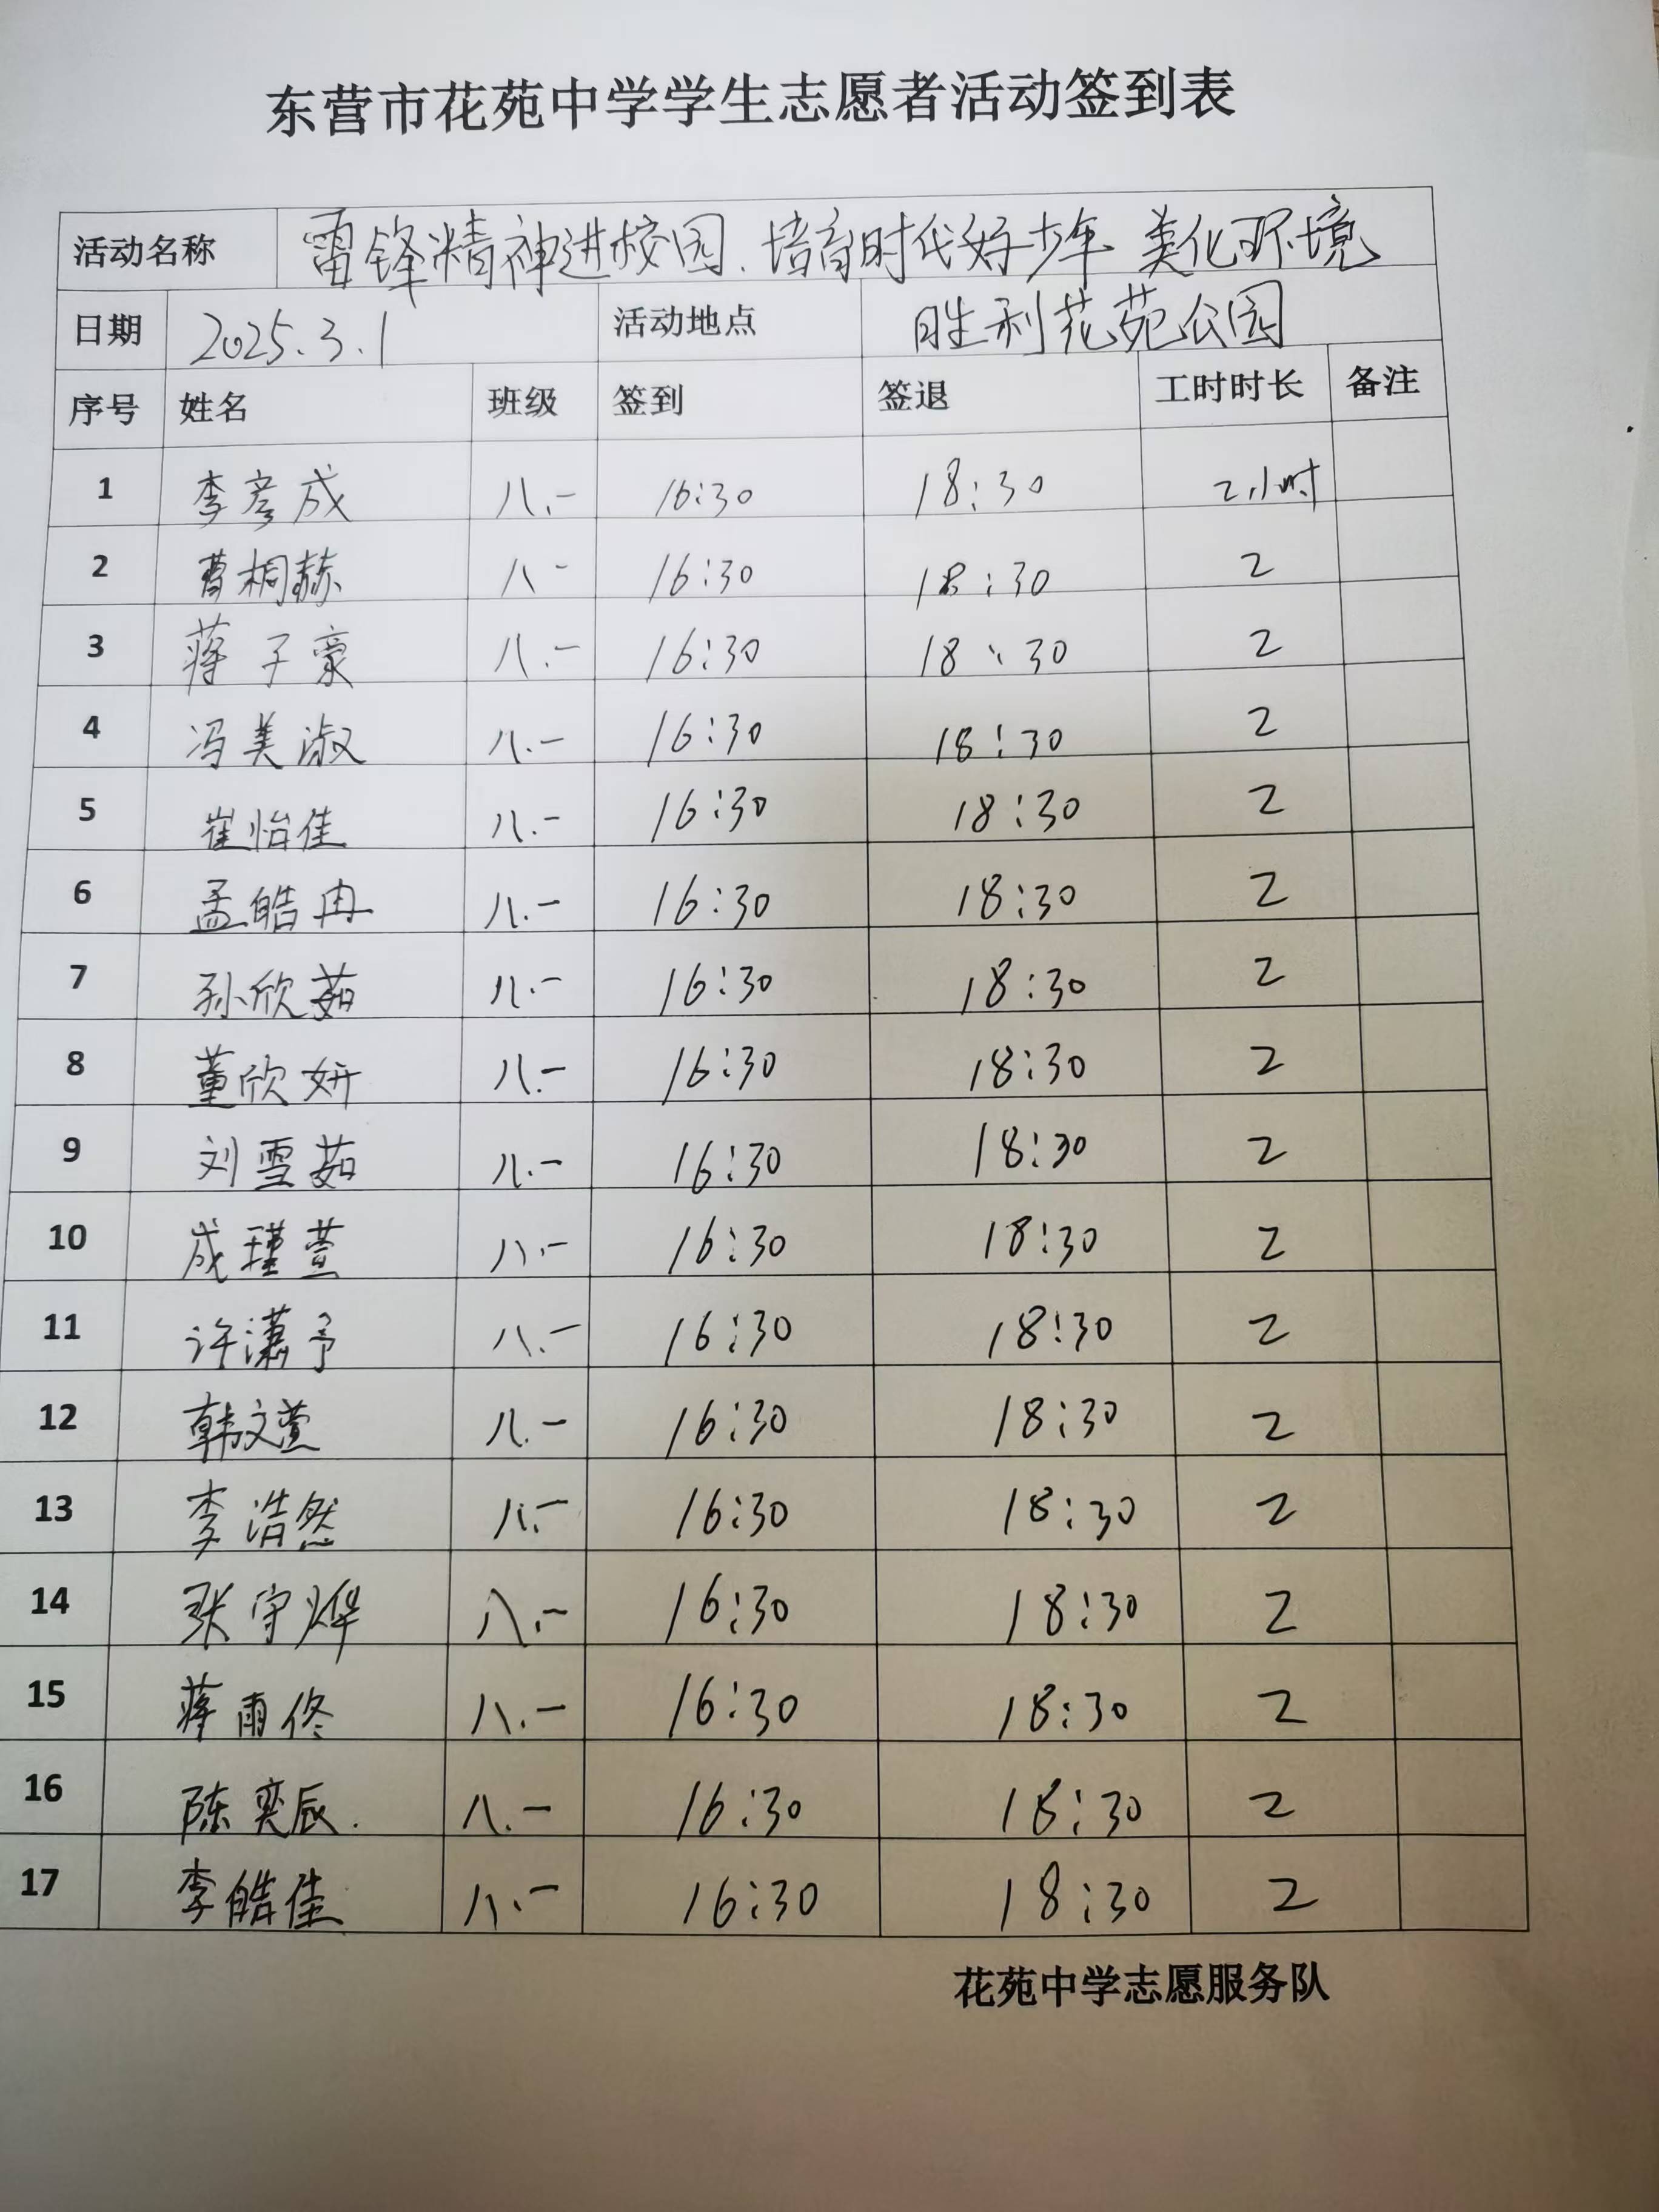 东营市花苑中学学生志愿者活动签到表
活动名称 雷锋精神进校园、培育时代好少年 美化环境
日期 2025.3.1 活动地点 胜利花苑公园
序号 姓名 班级 签到 签退 工时时长 备注
1 李彦成 八.一 16:30 18:30 2小时
2 曹桐赫 八一 16:30 18:30 2
3 蒋子豪 八.一 16:30 18:30 2
4 冯美淑 八.一 16:30 18:30 2
5 崔怡佳 八.一 16:30 18:30 2
6 孟皓冉 八.一 16:30 18:30 2
7 孙欣茹 八.一 16:30 18:30 2
8 董欣妍 八.一 16:30 18:30 2
9 刘雪茹 八.一 16:30 18:30 2
10 成瑾萱 八.一 16:30 18:30 2
11 许潇予 八.一 16:30 18:30 2
12 韩文萱 八.一 16:30 18:30 2
13 李浩然 八.一 16:30 18:30 2
14 张守烨 八.一 16:30 18:30 2
15 蒋雨佟 八.一 16:30 18:30 2
16 陈奕辰. 八.一 16:30 18:30 2
17 李皓佳 八.一 16:30 18:30 2
花苑中学志愿服务队